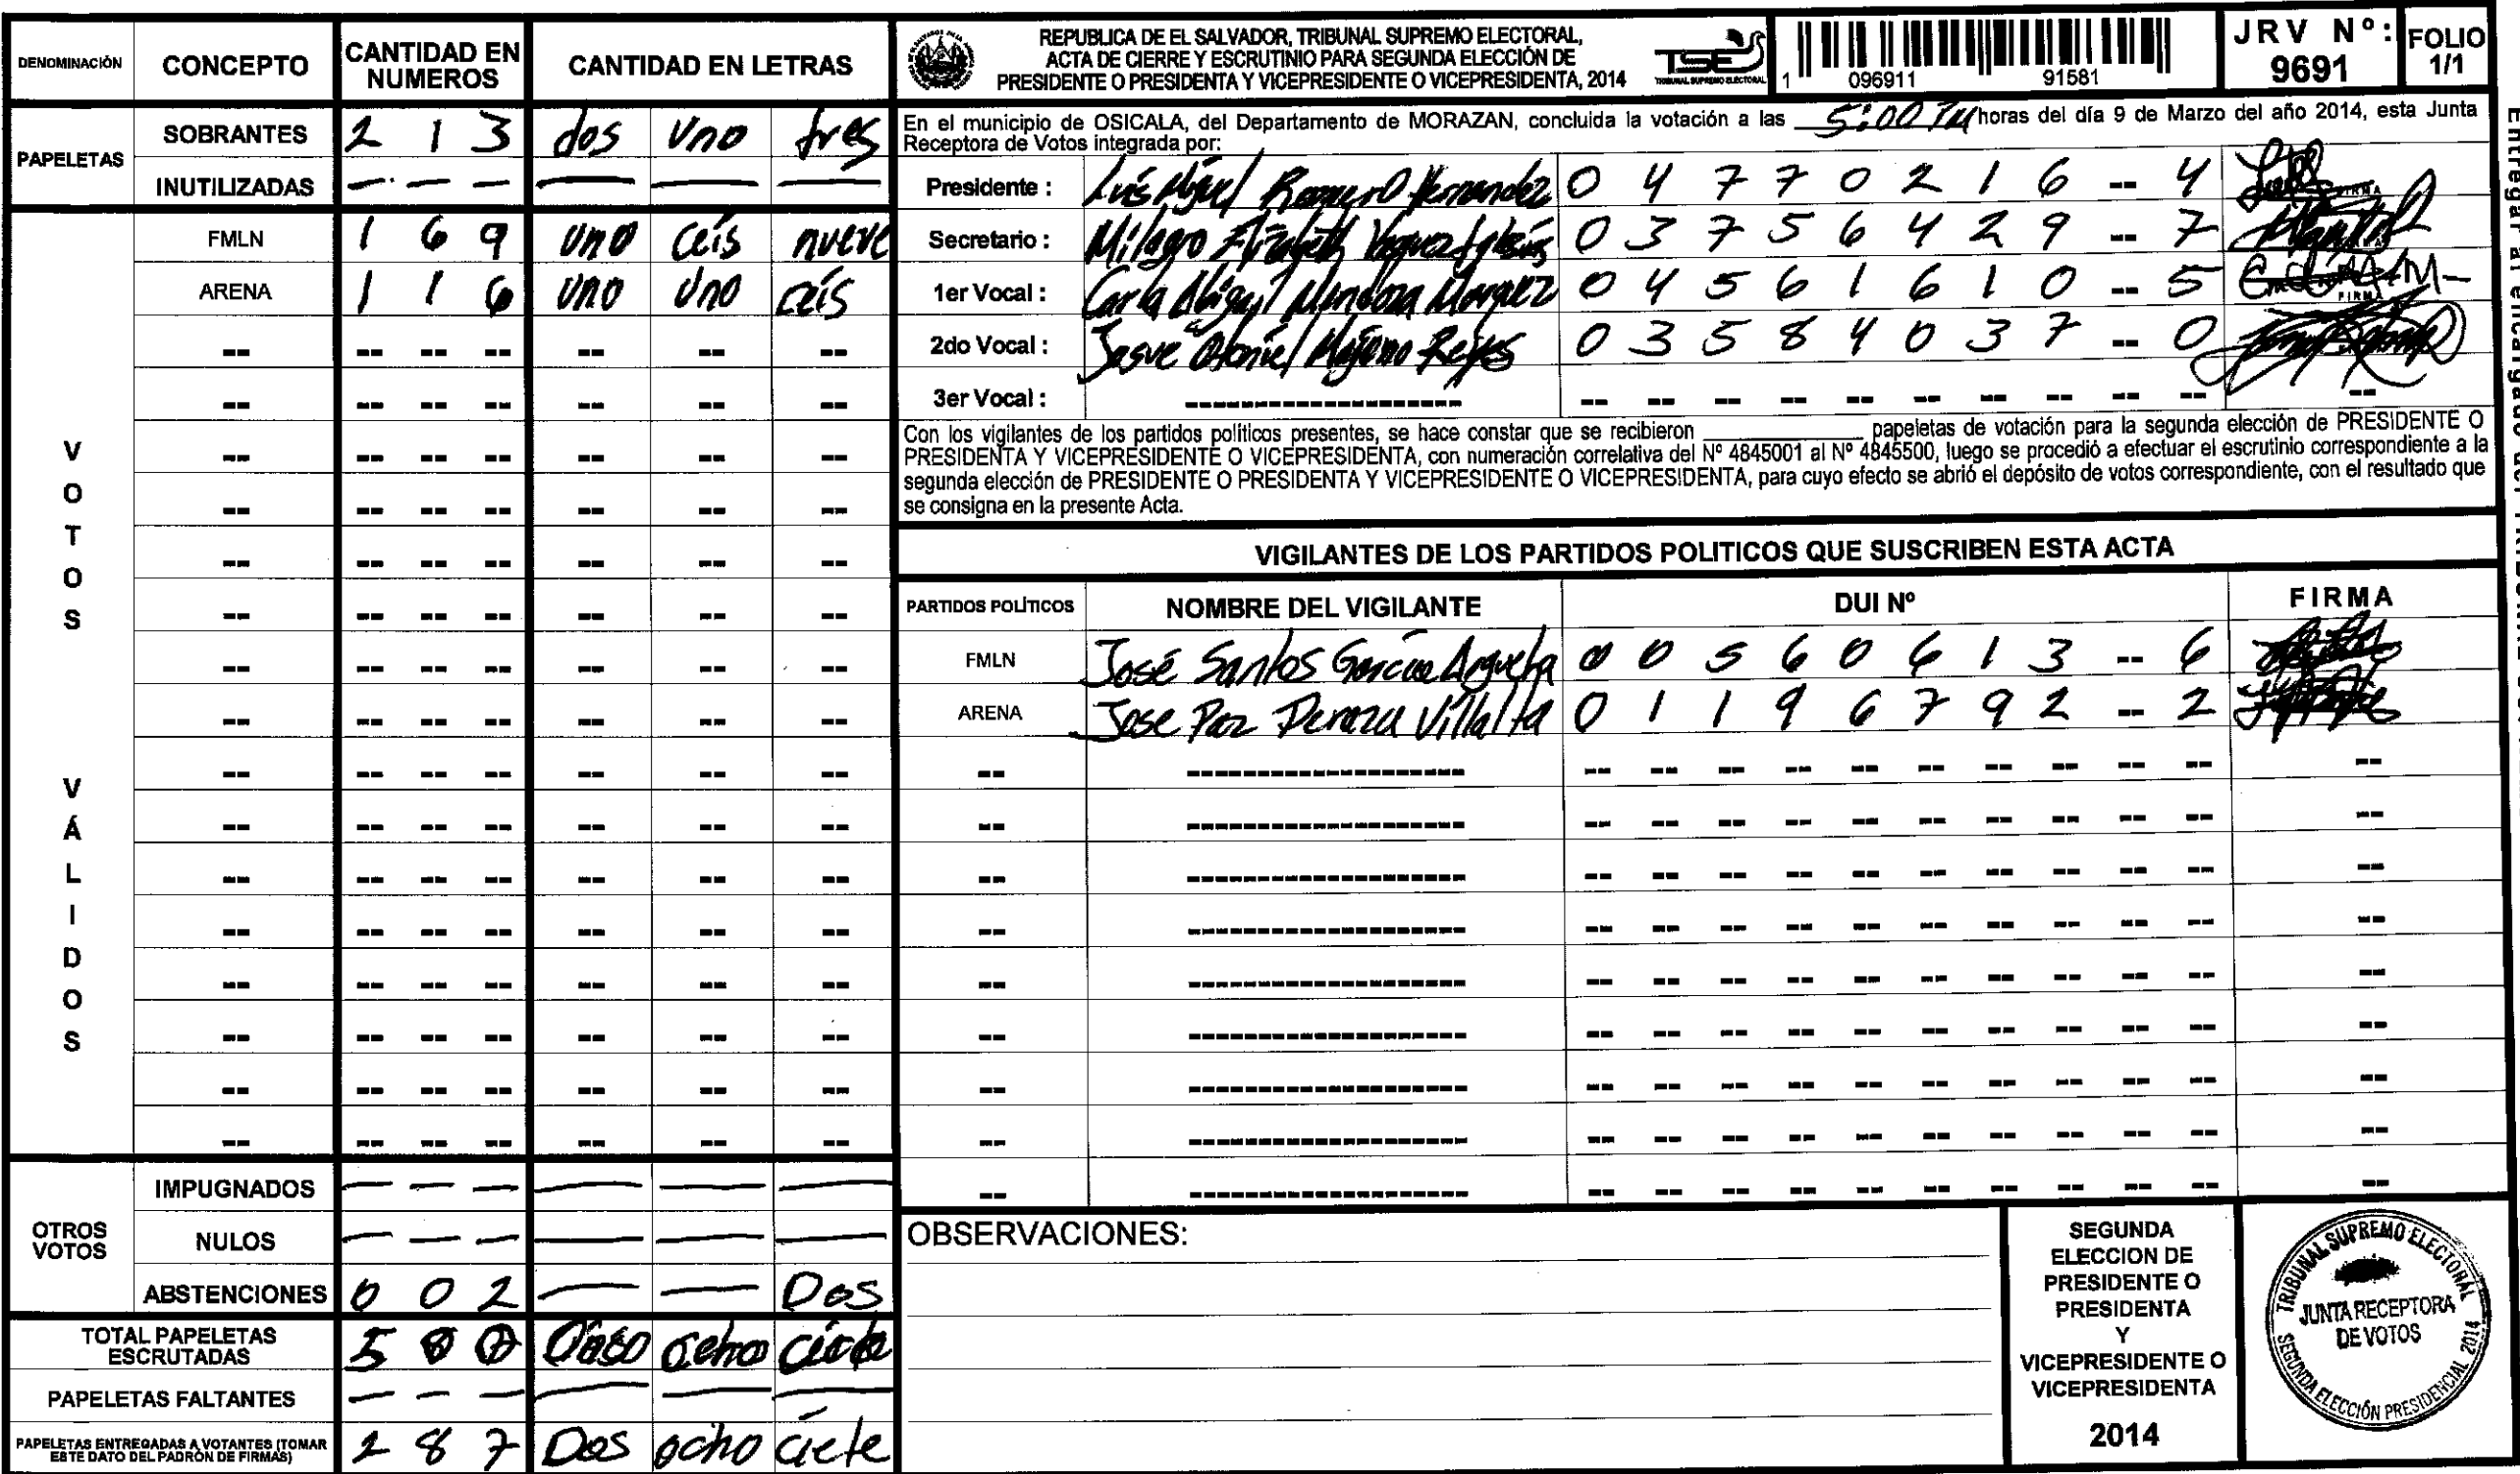 DENOMINACIÓN CONCEPTO CANTIDAD EN NUMEROS CANTIDAD EN LETRAS
PAPELETAS
SOBRANTES 2 1 3 dos uno tres
INUTILIZADAS — — — — — —
VOTOS VÁLIDOS
FMLN 1 6 9 uno ceis nueve
ARENA 1 1 6 uno uno ceis
OTROS VOTOS
IMPUGNADOS — — — — — —
NULOS — — — — — —
ABSTENCIONES 0 0 2 — — Dos
TOTAL PAPELETAS ESCRUTADAS 5 ocho
PAPELETAS FALTANTES — — — — — —
PAPELETAS ENTREGADAS A VOTANTES (TOMAR ESTE DATO DEL PADRÓN DE FIRMAS) 2 8 7 Dos ocho ciete
REPUBLICA DE EL SALVADOR, TRIBUNAL SUPREMO ELECTORAL,
ACTA DE CIERRE Y ESCRUTINIO PARA SEGUNDA ELECCIÓN DE
PRESIDENTE O PRESIDENTA Y VICEPRESIDENTE O VICEPRESIDENTA, 2014
TSE
TRIBUNAL SUPREMO ELECTORAL
1 096911 91581
JRV Nº: 9691
FOLIO 1/1
En el municipio de OSICALA, del Departamento de MORAZAN, concluida la votación a las 5:00 PM horas del día 9 de Marzo del año 2014, esta Junta
Receptora de Votos integrada por:
Presidente : Luis Miguel Romero Hernandez 0 4 7 7 0 2 1 6 -- 4
Secretario : Milagro Elizabeth Vasquez Iglesias 0 3 7 5 6 4 2 9 -- 7
1er Vocal : Carla Abigail Mendoza Marquez 0 4 5 6 1 6 1 0 -- 5
2do Vocal : Josue Otoniel Majano Reyes 0 3 5 8 4 0 3 7 -- 0
3er Vocal :
Con los vigilantes de los partidos políticos presentes, se hace constar que se recibieron ____ papeletas de votación para la segunda elección de PRESIDENTE O
PRESIDENTA Y VICEPRESIDENTE O VICEPRESIDENTA, con numeración correlativa del Nº 4845001 al Nº 4845500, luego se procedió a efectuar el escrutinio correspondiente a la
segunda elección de PRESIDENTE O PRESIDENTA Y VICEPRESIDENTE O VICEPRESIDENTA, para cuyo efecto se abrió el depósito de votos correspondiente, con el resultado que
se consigna en la presente Acta.
VIGILANTES DE LOS PARTIDOS POLITICOS QUE SUSCRIBEN ESTA ACTA
PARTIDOS POLÍTICOS NOMBRE DEL VIGILANTE DUI Nº FIRMA
FMLN José Santos García Argueta 0 0 5 6 0 6 1 3 -- 6
ARENA Jose Paz Peraza Villalta 0 1 1 9 6 7 9 2 -- 2
OBSERVACIONES:
SEGUNDA
ELECCION DE
PRESIDENTE O
PRESIDENTA
Y
VICEPRESIDENTE O
VICEPRESIDENTA
2014
TRIBUNAL SUPREMO ELECTORAL
JUNTA RECEPTORA
DE VOTOS
SEGUNDA ELECCIÓN PRESIDENCIAL 2014
Entregar al encargado del